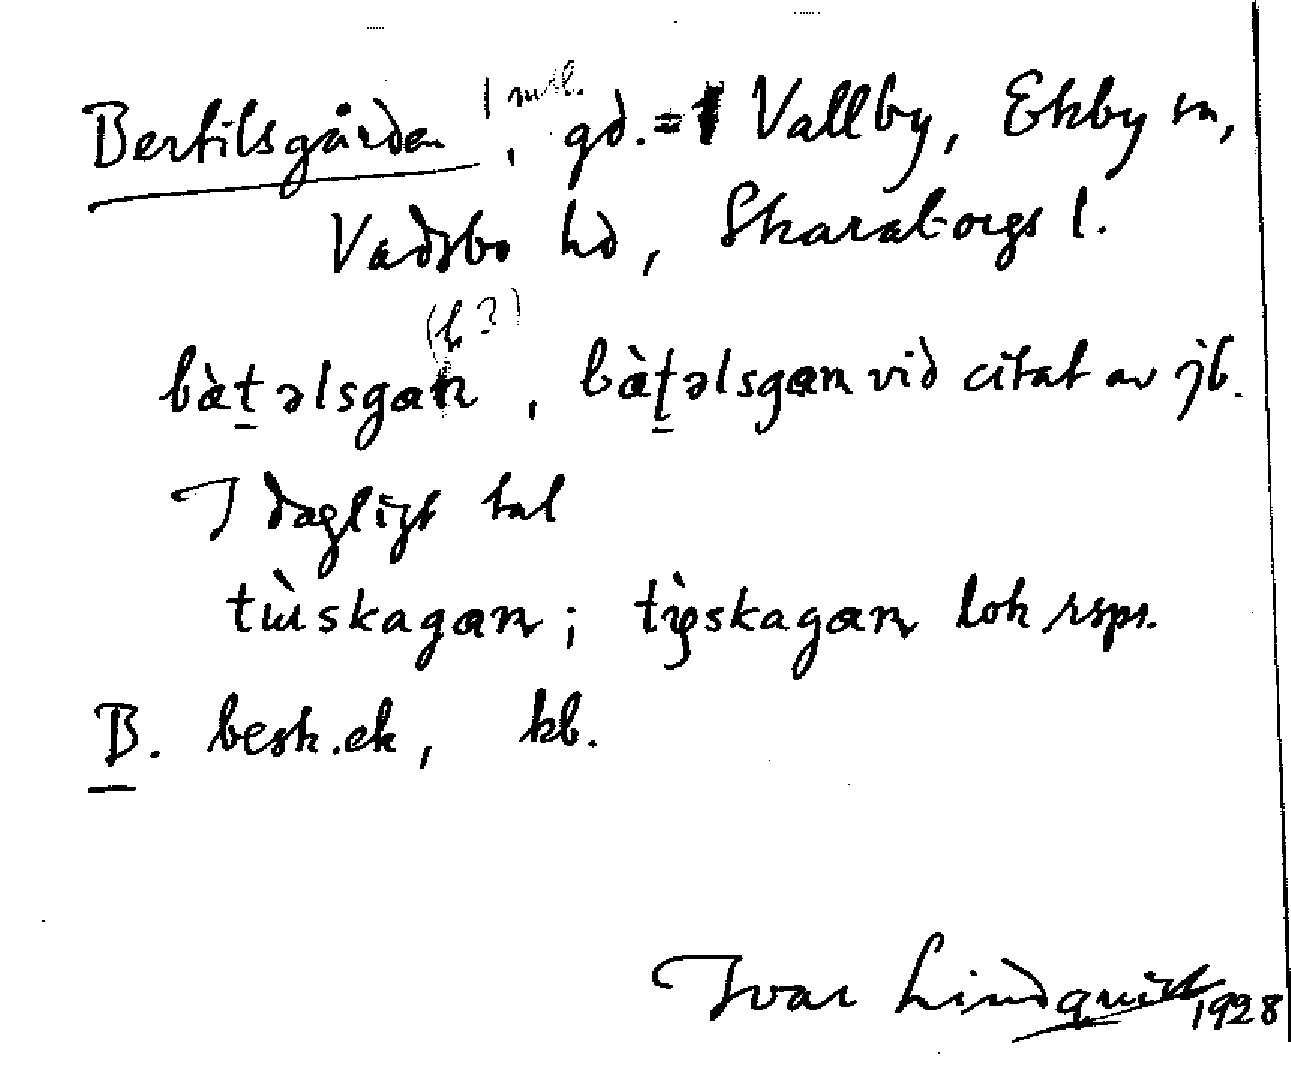 Bertilsgården 1 mtl., gd. = 1 Vallby, Ekby sn,
Vadsbo hd, Skaraborgs l.
(h?)
bàt̠əlsgan, bàt̠əlsgan vid citat av jb.
I dagligt tal
tùskagan; tỳskagan lok rspr.
B. besk. ek, kb.
Ivar Lindquist 1928